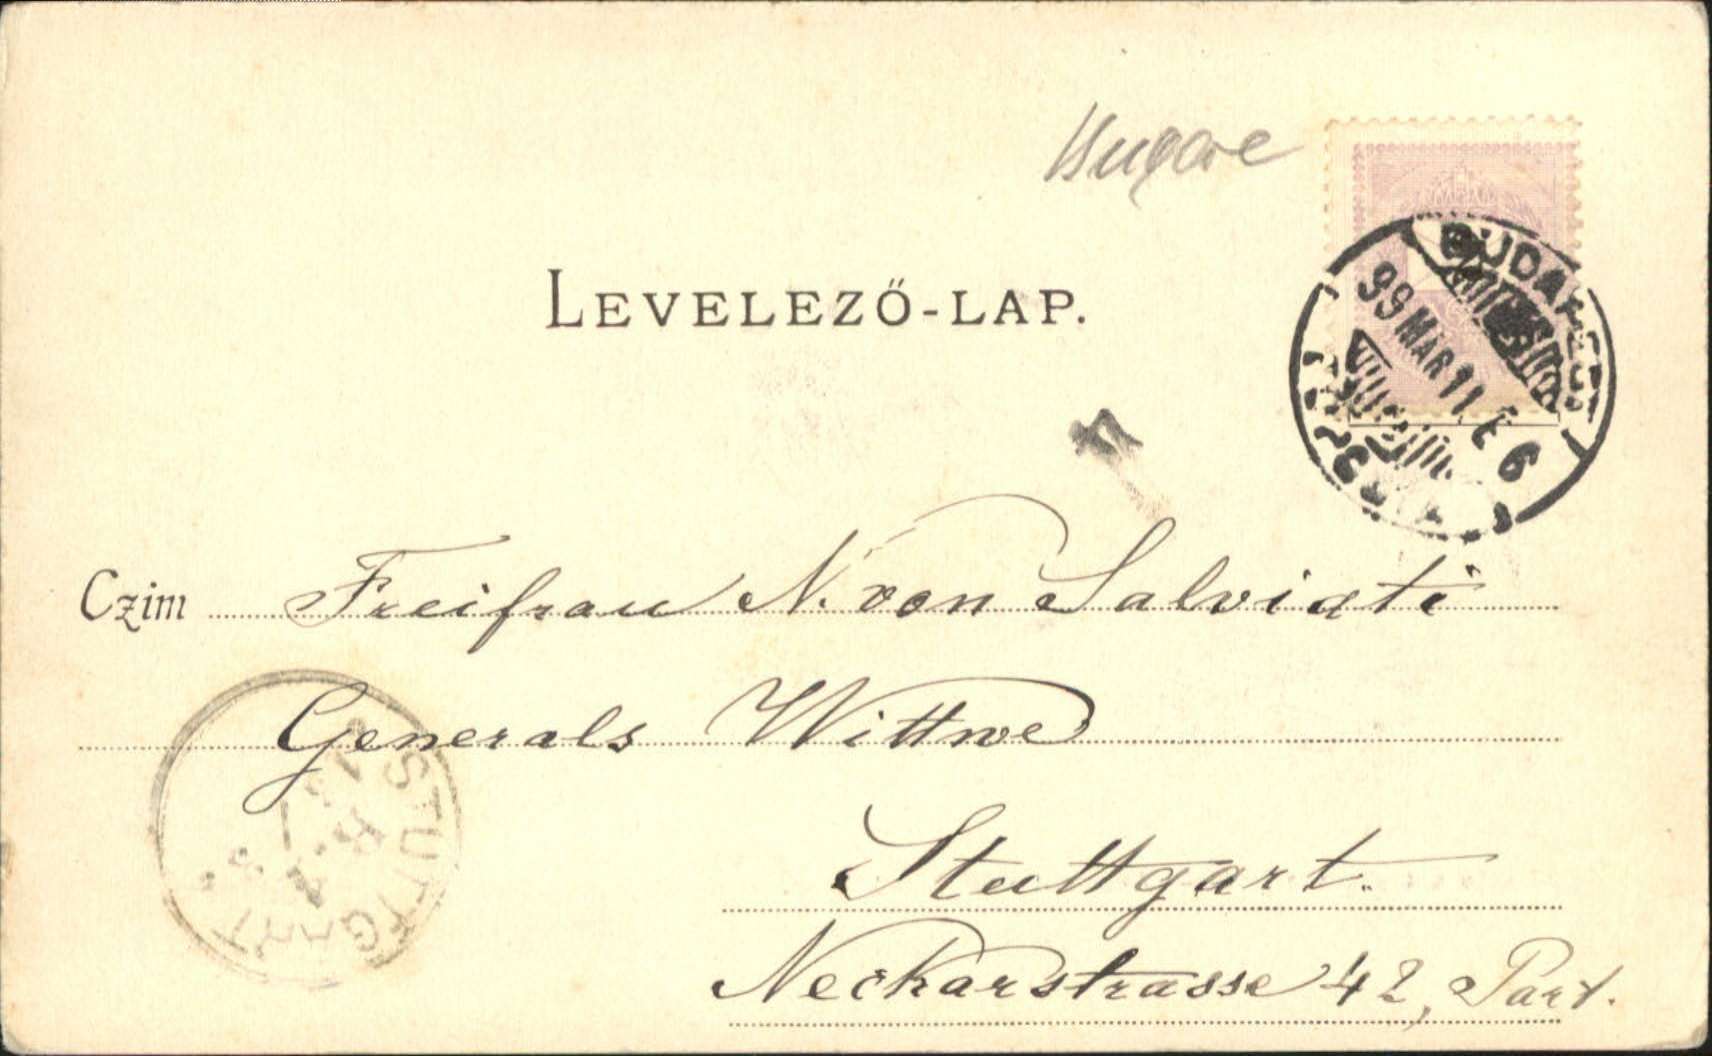 LEVELEZŐ-LAP.
BUDAPEST
99 MÁR 11. É 6
4
Czim Freifrau N. von Salviati
Generals Wittwe
STUTTGART
Stuttgart.
Neckarstrasse 42, Part.